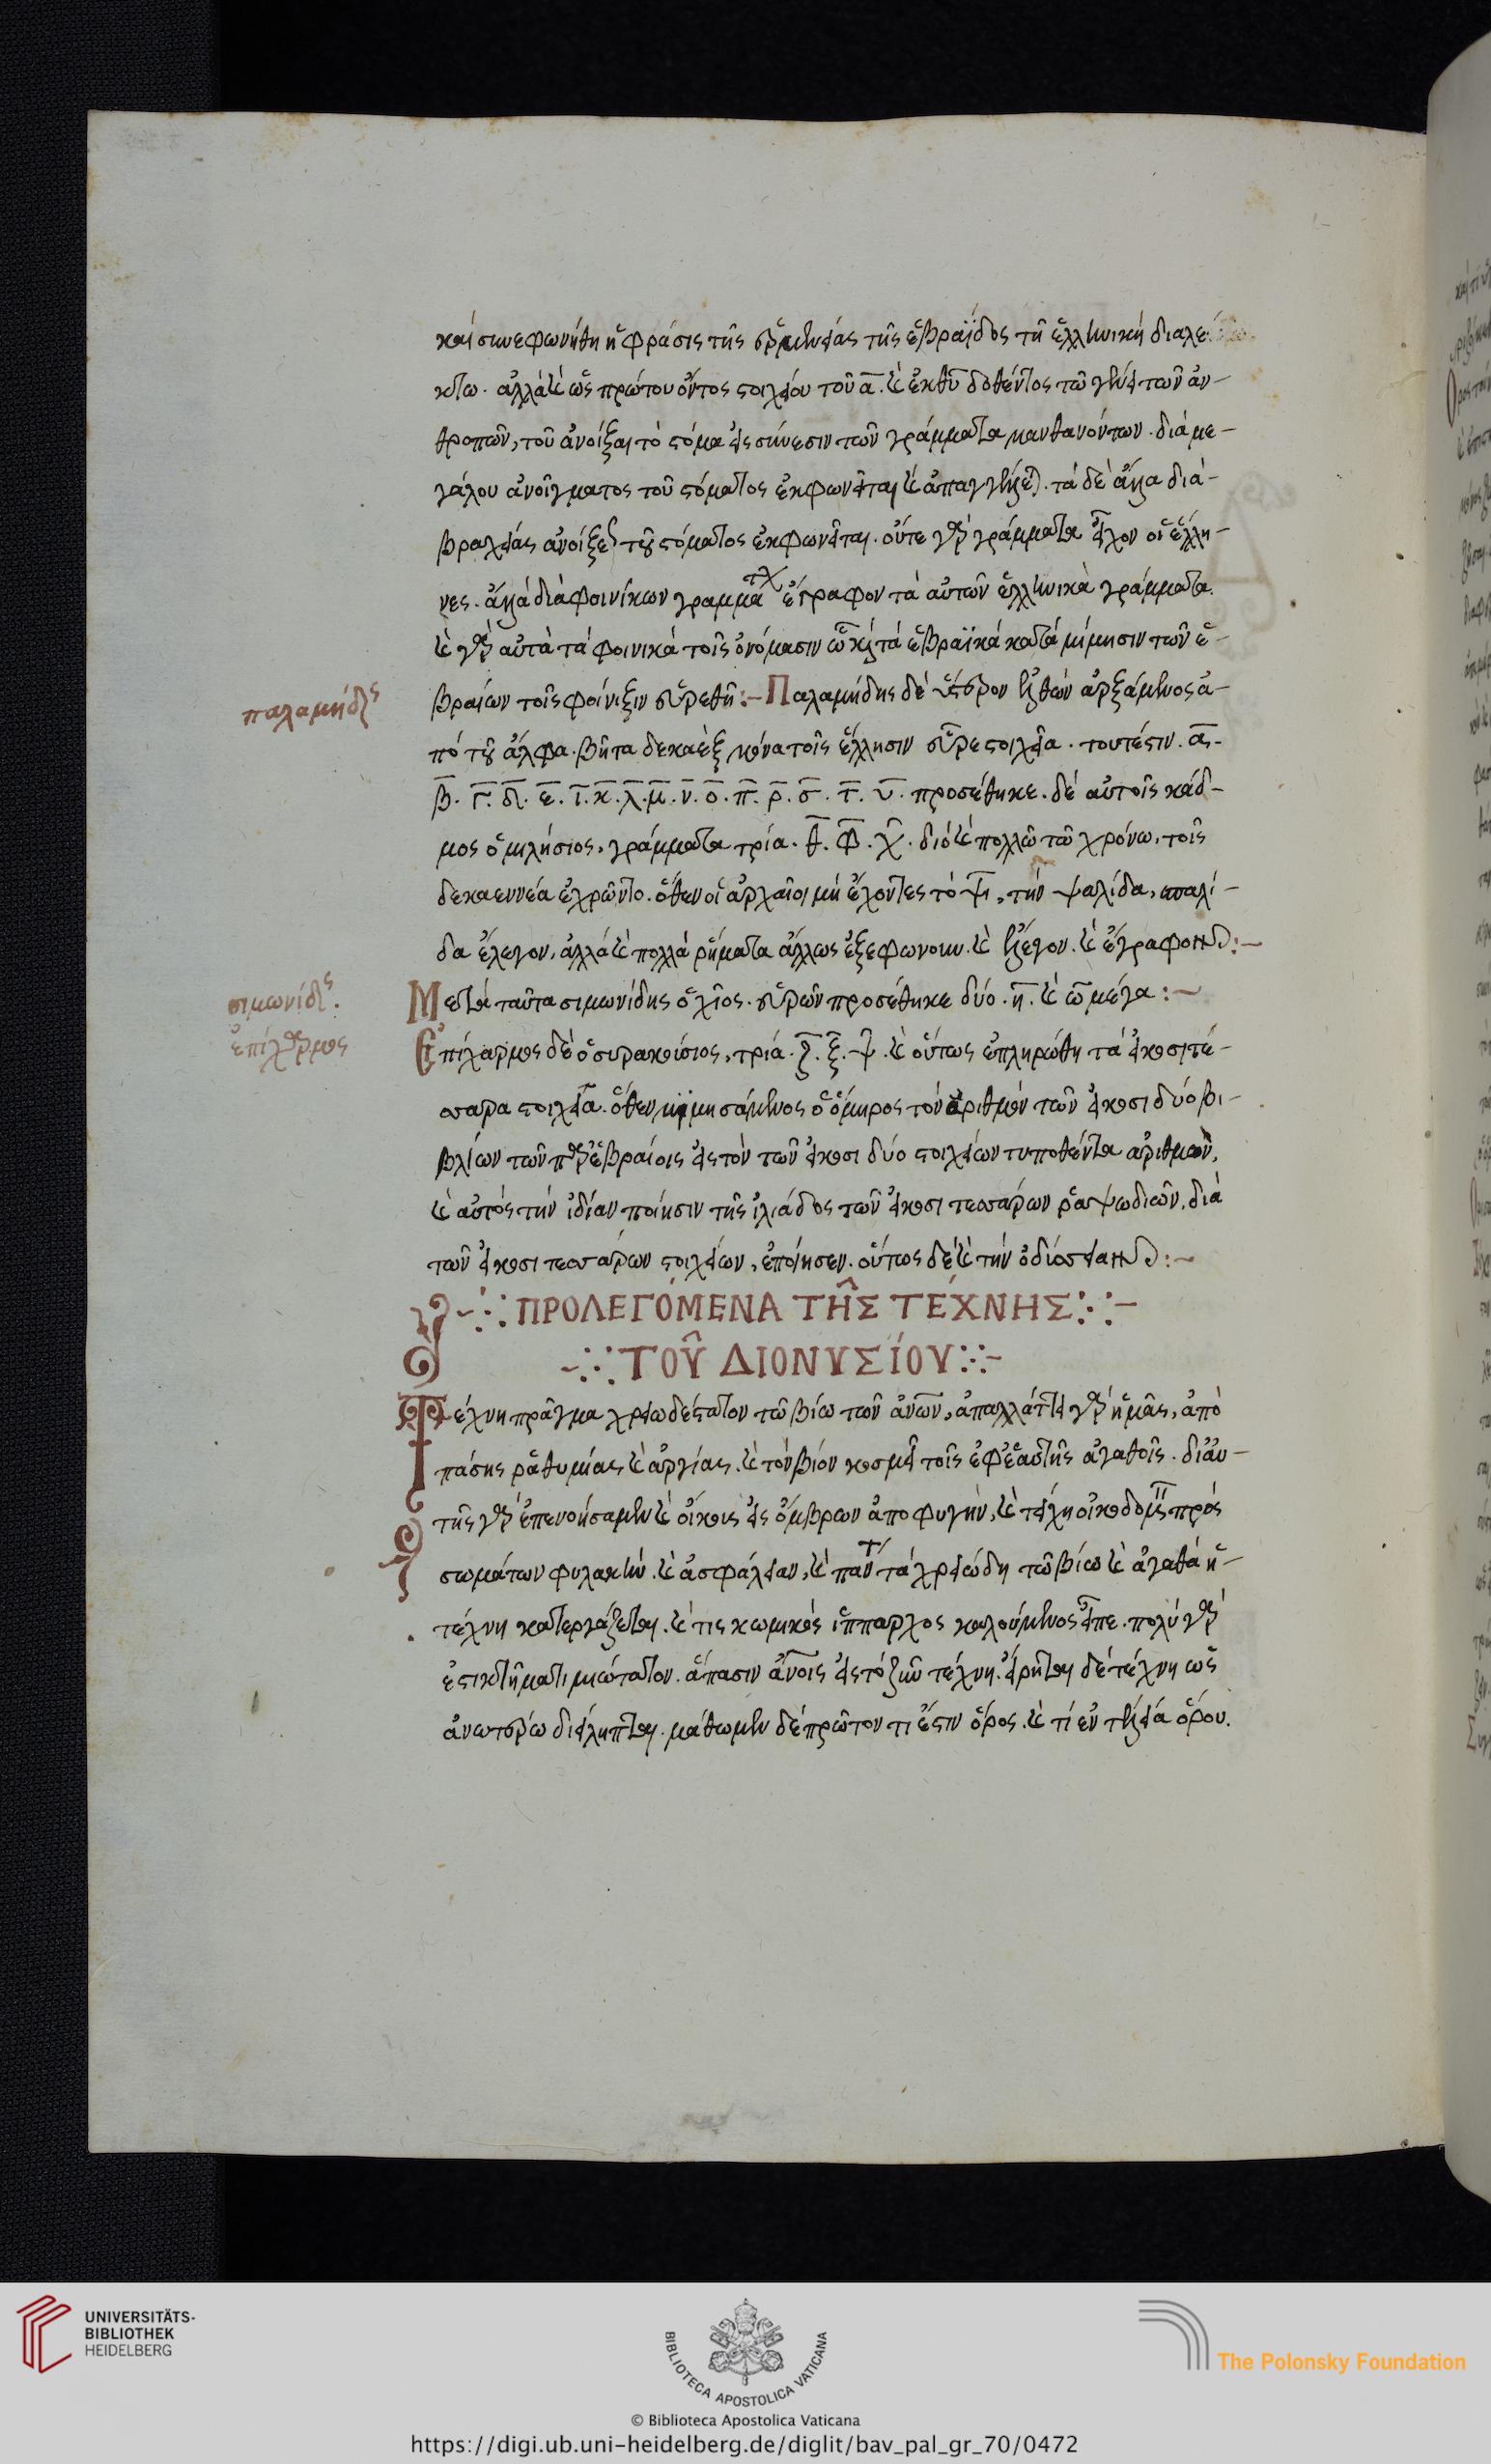 καὶ συνεφωνήθη ἡ φράσις τῆς ἑρμηνείας τῆς ἑβραΐδος τῆ ἑλληνικῆ διαλε
κτω. ἀλλὰ καὶ ὡς πρώτου ὄντος στοιχείου τοῦ α. καὶ ἐκ θυ δοθέντος τῶ γένει τῶν ἀν-
θροπῶν, τοῦ ἀνοίξαι τὸ στόμα εἰς σύνεσιν τῶν γράμματα μανθανόντων. διὰ με-
γάλου ἀνοίγματος τοῦ στόματος ἐκφωνεῖται καὶ ἀπαγγέλλεται. τὰ δὲ ἄλλα διὰ-
βραχείας ἀνοίξεως τοῦ στόματος ἐκφωνεῖται. οὔτε γὰρ γράμματα εἶχον οἱ ἕλλη-
νες. ἀλλὰ διὰ φοινίκων γραμμάτων ἔγραφον τὰ αὐτῶν ἑλληνικὰ γράμματα.
καὶ γὰρ αὐτὰ τὰ φοινικὰ τοῖς ὀνόμασιν ὡς καὶ τὰ ἑβραϊκὰ κατὰ μίμησιν τῶν ἑ-
παλαμήδης
βραίων τοῖς φοίνιξιν εὑρεθῆ:- Παλαμήδης δὲ ὕστερον ἐλθὼν ἀρξάμενος ἀ-
πὸ τοῦ ἄλφα. βῆτα δεκαὲξ μόνα τοῖς ἕλλησιν εὗρε στοιχεῖα. τουτέστιν. α.-
β. γ. δ. ε. ι. κ. λ. μ. ν. ο. π. ρ. σ. τ. υ. προσέθηκε. δὲ αὐτοῖς κάδ-
μος ὁ μιλήσιος, γράμματα τρία. θ. φ. χ. διὸ καὶ πολλῶ τῶ χρόνω, τοῖς
δεκαεννέα ἐχρῶντο. ὅθεν οἱ ἀρχαῖοι μὴ ἔχοντες τὸ ψι, τὴν ψαλίδα, σπαλί-
δα ἔλεγον, ἀλλὰ καὶ πολλὰ ῥήματα ἄλλως ἐξεφώνουν. καὶ ἔλεγον. καὶ ἔγραφον:-
σιμωνίδης.
Μετὰ ταῦτα σιμωνίδης ὁ χῖος. εὑρῶν προσέθηκε δύο. η. καὶ ω μέγα:-
ἐπίχαρμος
Ἐπίχαρμος δὲ ὁ συρακούσιος, τρία. ζ. ξ. ψ. καὶ οὕτως ἐπληρώθη τὰ εἰκοσιτέ-
σσαρα στοιχεῖα. ὅθεν μιμησάμενος ὁ ὅμηρος τὸν ἀριθμὸν τῶν εἴκοσι δύο βι-
βλίων τῶν παρ' ἑβραίοις εἰς τὸν τῶν εἴκοσι δύο στοιχείων τυποθέντα ἀριθμὸν,
καὶ αὐτὸς τὴν ἰδίαν ποίησιν τῆς ἰλιάδος τῶν εἴκοσι τεσσάρων ῥαψωδιῶν, διὰ
τῶν εἴκοσι τεσσάρων στοιχείων, ἐποίησεν. οὕτως δὲ καὶ τὴν ὀδύσσειαν:-
ΠΡΟΛΕΓΌΜΕΝΑ ΤΗ͂Σ ΤΈΧΝΗΣ
ΤΟΥ͂ ΔΙΟΝΥΣΊΟΥ
Τέχνη πρᾶγμα χρειωδέστατον τῶ βίω τῶν ἀνων, ἀπαλλάττει γὰρ ἡμᾶς, ἀπὸ
πάσης ῥαθυμίας καὶ ἀργίας. καὶ τὸν βίον κοσμεῖ τοῖς ἐφ' ἑαυτῆς ἀγαθοῖς. δι' αὐ-
τῆς γὰρ ἐπενοήσαμεν καὶ οἴκους εἰς ὄμβρων ἀποφυγὴν, καὶ τείχη οἰκοδομῆς πρὸς
σωμάτων φυλακὴν. καὶ ἀσφάλειαν, καὶ πάντα τὰ χρειώδη τῶ βίω καὶ ἀγαθὰ ἡ-
τέχνη κατεργάζεται. καὶ τις κωμικὸς ἵππαρχος καλούμενος εἶπε. πολύ γὰρ
ἐστι κτῆμα τιμιώτατον. ἅπασιν ἀνοις εἰς τὸ ζῆν τέχνη. εἴρηται δὲ τέχνη ὡς
ἀνωτέρω διείληπται. μάθωμεν δὲ πρῶτον τι ἐστιν ὅρος. καὶ τί ἐν τελεία ὅρου.
UNIVERSITÄTS-
BIBLIOTHEK
HEIDELBERG
BIBLIOTECA APOSTOLICA VATICANA
The Polonsky Foundation
© Biblioteca Apostolica Vaticana
https://digi.ub.uni-heidelberg.de/diglit/bav_pal_gr_70/0472